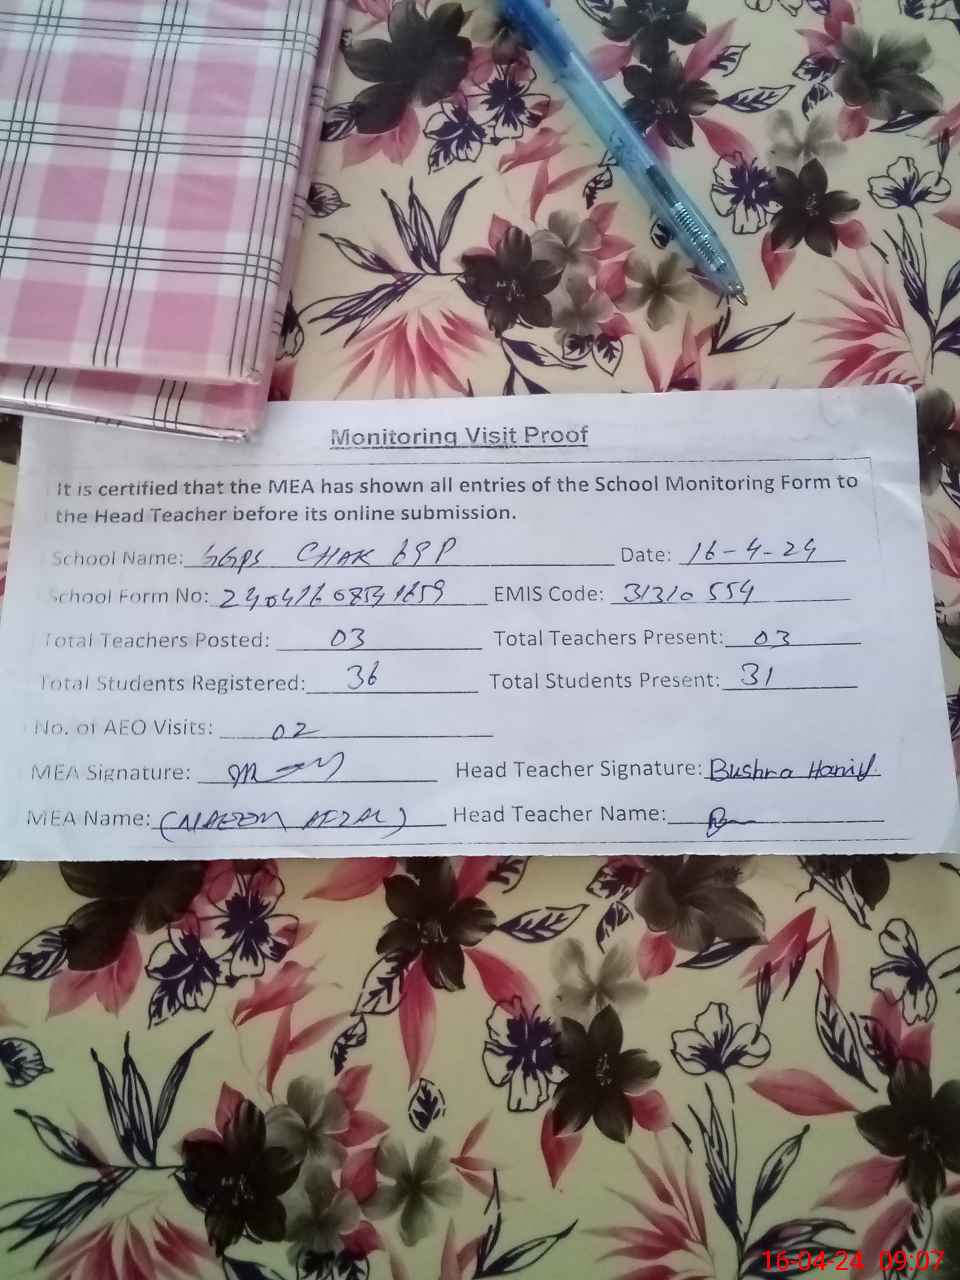 Monitoring Visit Proof
It is certified that the MEA has shown all entries of the School Monitoring Form to
the Head Teacher before its online submission.
School Name: GGPS CHAK 69P Date: 16-4-24
School Form No: EMIS Code: 31310554
Total Teachers Posted: 03 Total Teachers Present: 03
Total Students Registered: 36 Total Students Present: 31
No. of AEO Visits: 02
MEA Signature: Head Teacher Signature: Bushra Hanif
MEA Name: (NAEEM AFZAL) Head Teacher Name:
16-04-24 09:07